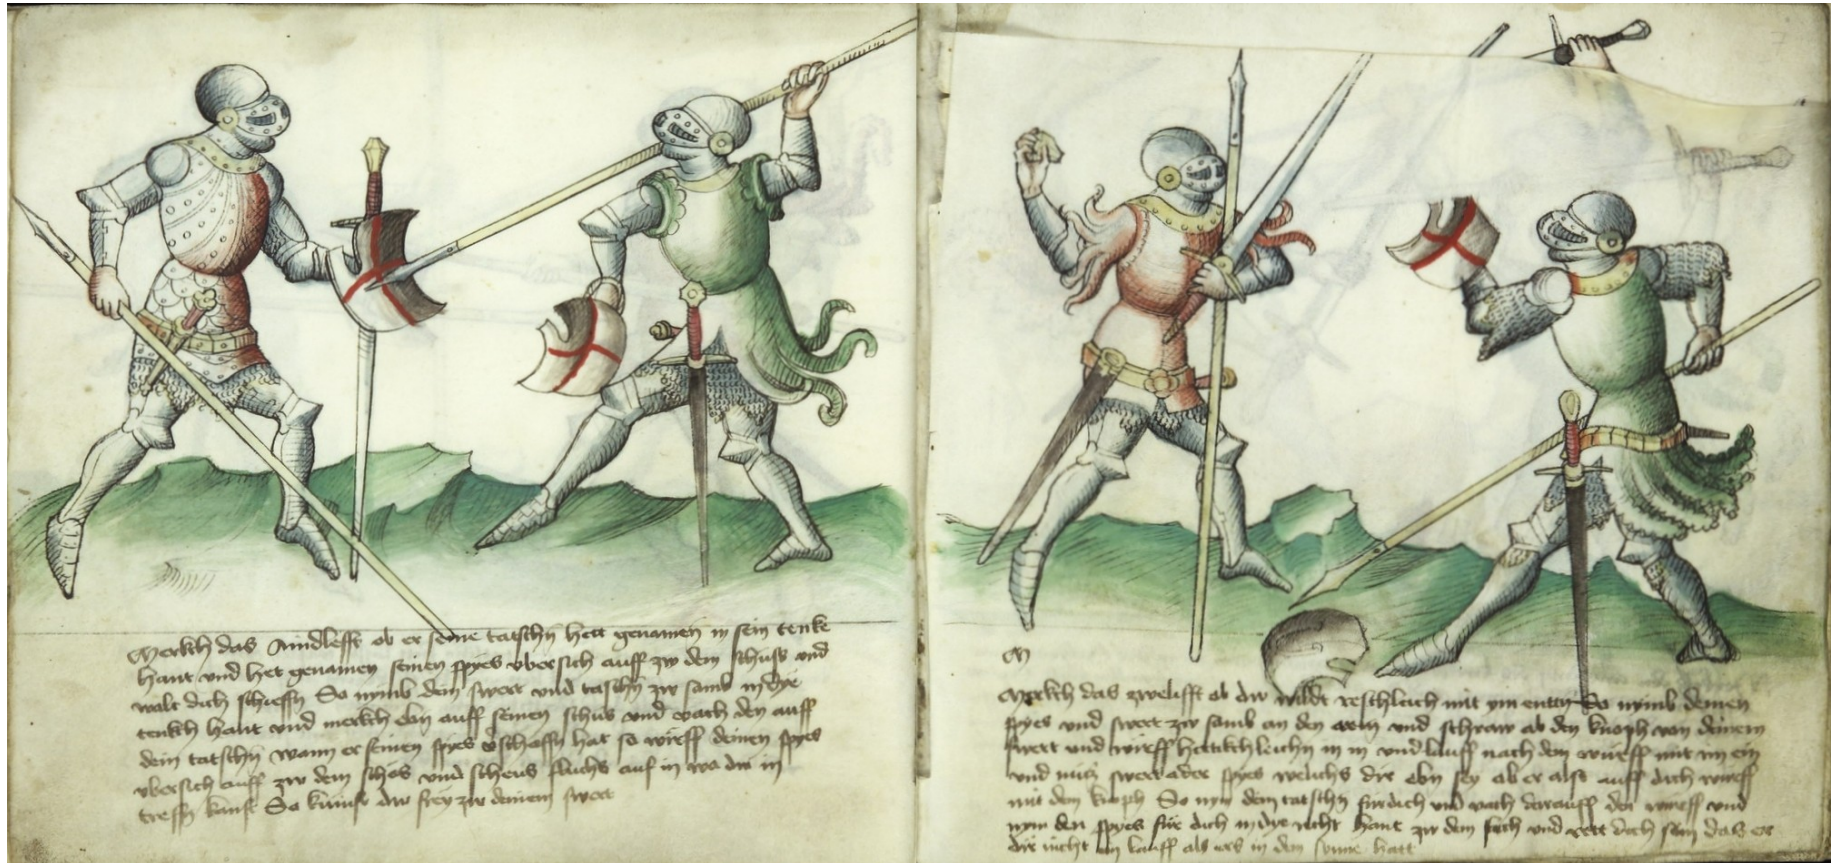 Merckh das Aindlefft ob er seine tatschn hett genomen in sein tencke
hant und het genomen seinen spyes ubersich auff zw dem schuss und
walt dich schiessn So nymb dein swert und tatschn zw samb in dye
tenckh hant und merckh ebn auff seinen schus und vach den auff
dein tatschn wann er seinen spyes verschossn hat so wirff deinen spyes
ubersich auff zw dem schos und scheus fluchs auf in wo du in
treffn kanst So kumst du frey zw deinem swert
M
Merckh das zwelifft ob du wildt reschleich mit ym entn So nymb deinen
spyes und swert zw samb an den arm und schraw ab den knoph von deinem
swert und wirff in in und lauff nach dem wurff mit im ein
und nutz swert oder spyes welichs dir ebn sey ob er also auff dich wirfft
mit dem knoph So nym dein tatschn für dich und vach darauff den wurff und
nym den spyes für dich in dye recht hant zw dem stich und rett dich sein das er
dir nicht ein lauff als ers in dem synne hatt